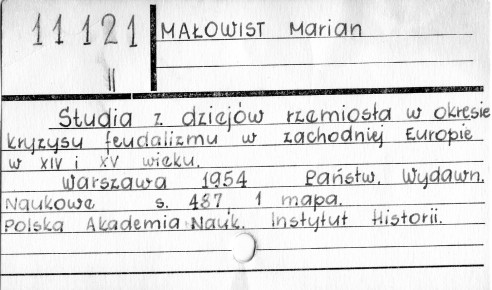 11 121
II
MAŁOWIST Marian
Studia z dziejów rzemiosła w okresie
kryzysu feudalizmu w zachodniej Europie
w XIV i XV wieku.
Warszawa 1954 Państw. Wydawn.
Naukowe s. 487, 1 mapa.
Polska Akademia Nauk. Instytut Historii.